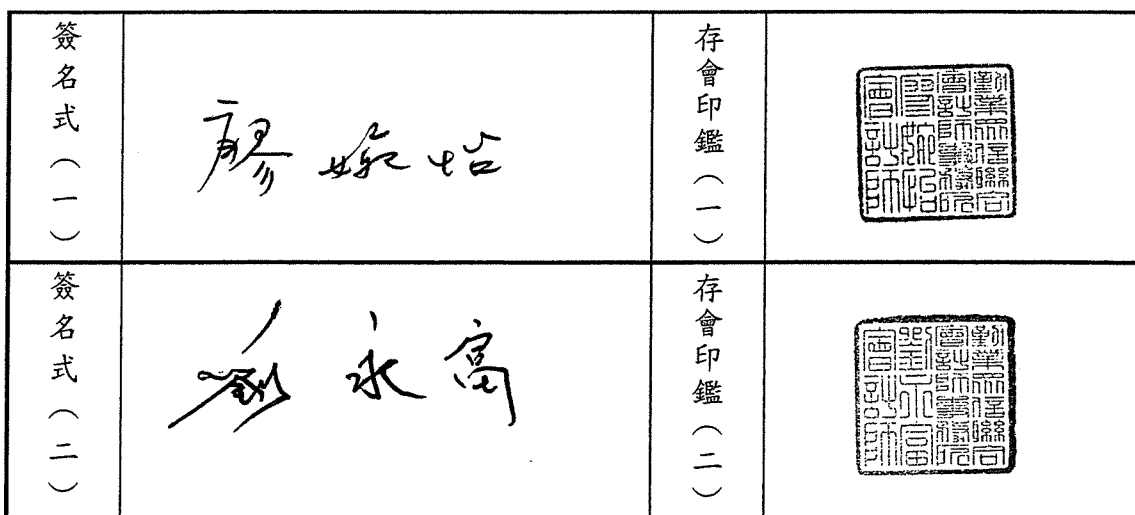 簽名式（一）
廖婉怡
存會印鑑（一）
勤業眾信聯合
會計師事務所
廖婉怡
會計師
簽名式（二）
劉永富
存會印鑑（二）
勤業眾信聯合
會計師事務所
劉永富
會計師